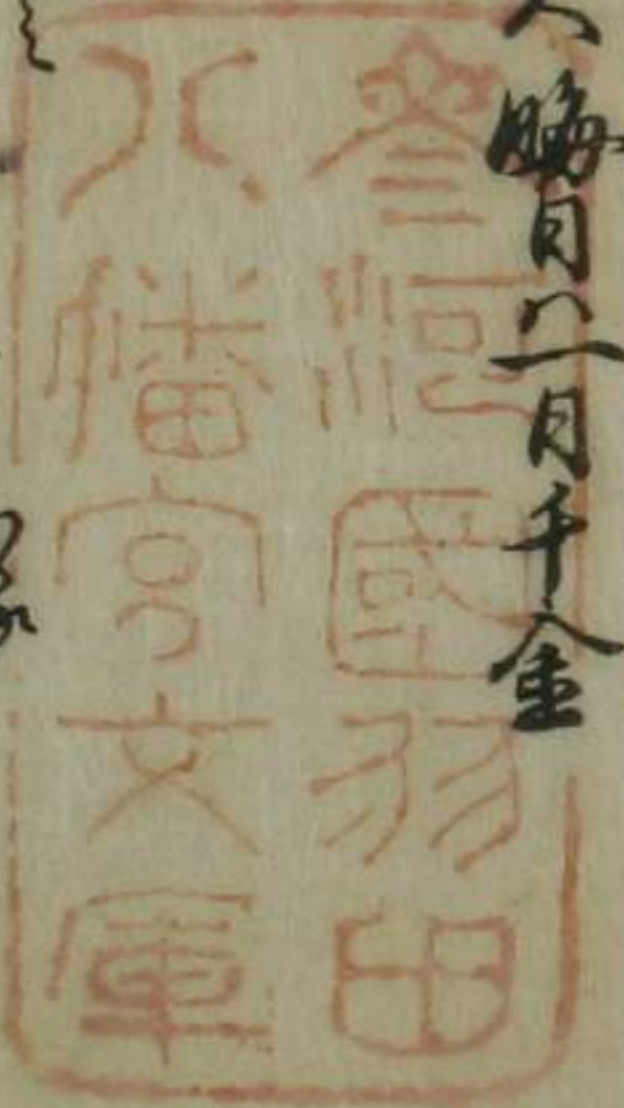 晦日八一月千金
參河國羽田
八幡宮文庫